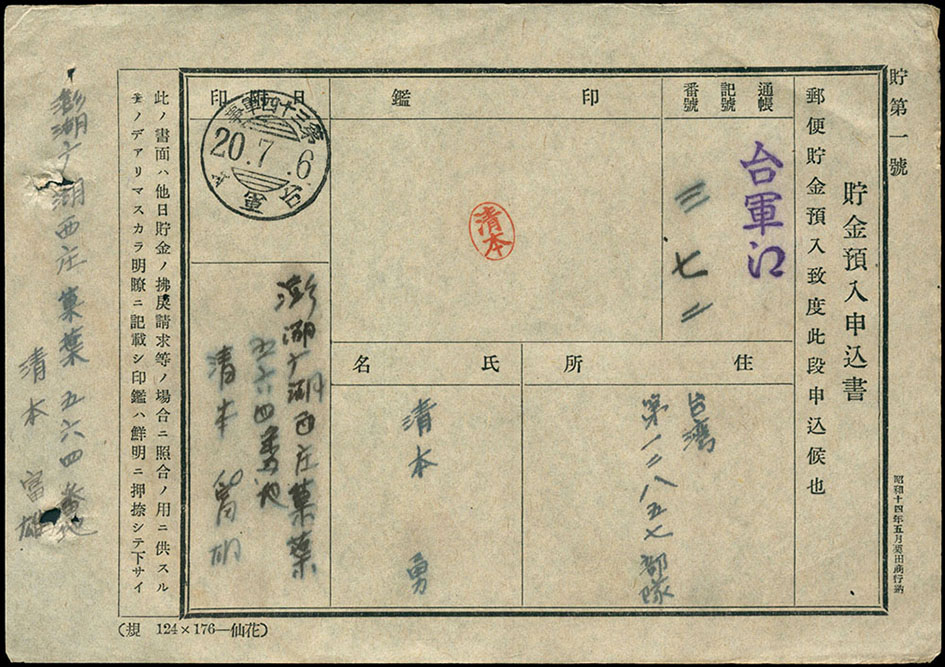 貯第一號
貯金預入申込書
郵便貯金預入致度此段申込候也
昭和十四年五月
通帳
記號
番號
台軍江
三七二
印鑑
清本
日附印
第三十四軍事
20.7.6
台軍
住所
台湾
第一二八五七部隊
氏名
清本 勇
澎湖庁湖西庄菓葉
五六四番地
清本 富雄
此ノ書面ハ他日貯金ノ拂戾請求等ノ場合ニ照合ノ用ニ供スル
モノデアリマスカラ明瞭ニ記載シ印鑑ハ鮮明ニ押捺シテ下サイ
澎湖庁湖西庄菓葉五六四番地
清本 富雄
(規 124×176—仙花)